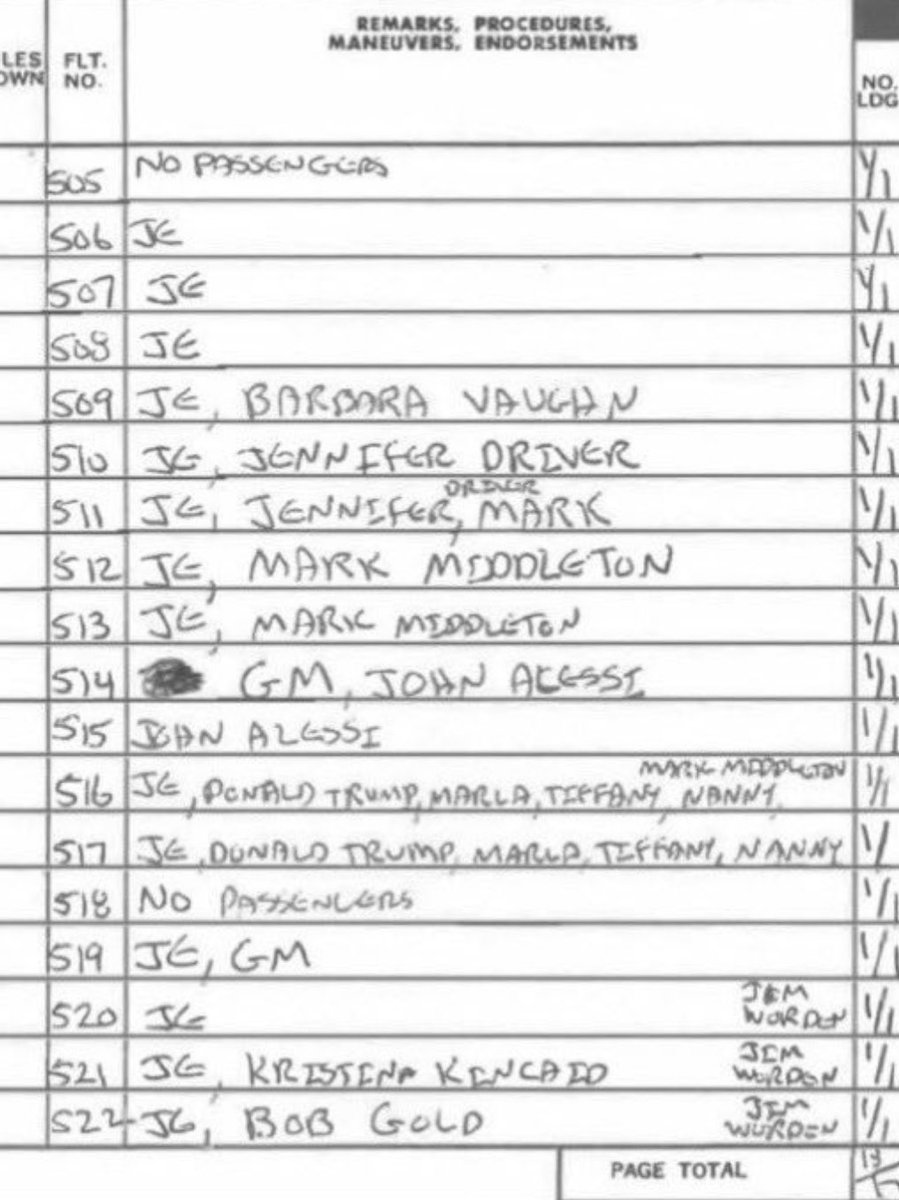 REMARKS, PROCEDURES,
MANEUVERS, ENDORSEMENTS
LES
OWN
FLT.
NO.
NO.
LDG
505 NO PASSENGERS 1/1
506 JE 1/1
507 JE 1/1
508 JE 1/1
509 JE, BARBARA VAUGHN 1/1
510 JE, JENNIFER DRIVER 1/1
DRIVER
511 JE, JENNIFER, MARK 1/1
512 JE, MARK MIDDLETON 1/1
513 JE, MARK MIDDLETON 1/1
514 GM, JOHN ALESSI 1/1
515 JOHN ALESSI 1/1
MARK MIDDLETON
516 JE, DONALD TRUMP, MARLA, TIFFANY, NANNY, 1/1
517 JE, DONALD TRUMP, MARLA, TIFFANY, NANNY 1/
518 NO PASSENGERS 1/1
519 JE, GM 1/1
JIM
520 JE WORDEN 1/1
JIM
521 JE, KRISTINA KINCAID WORDEN 1/1
JIM
522 JE, BOB GOLD WORDEN 1/1
PAGE TOTAL